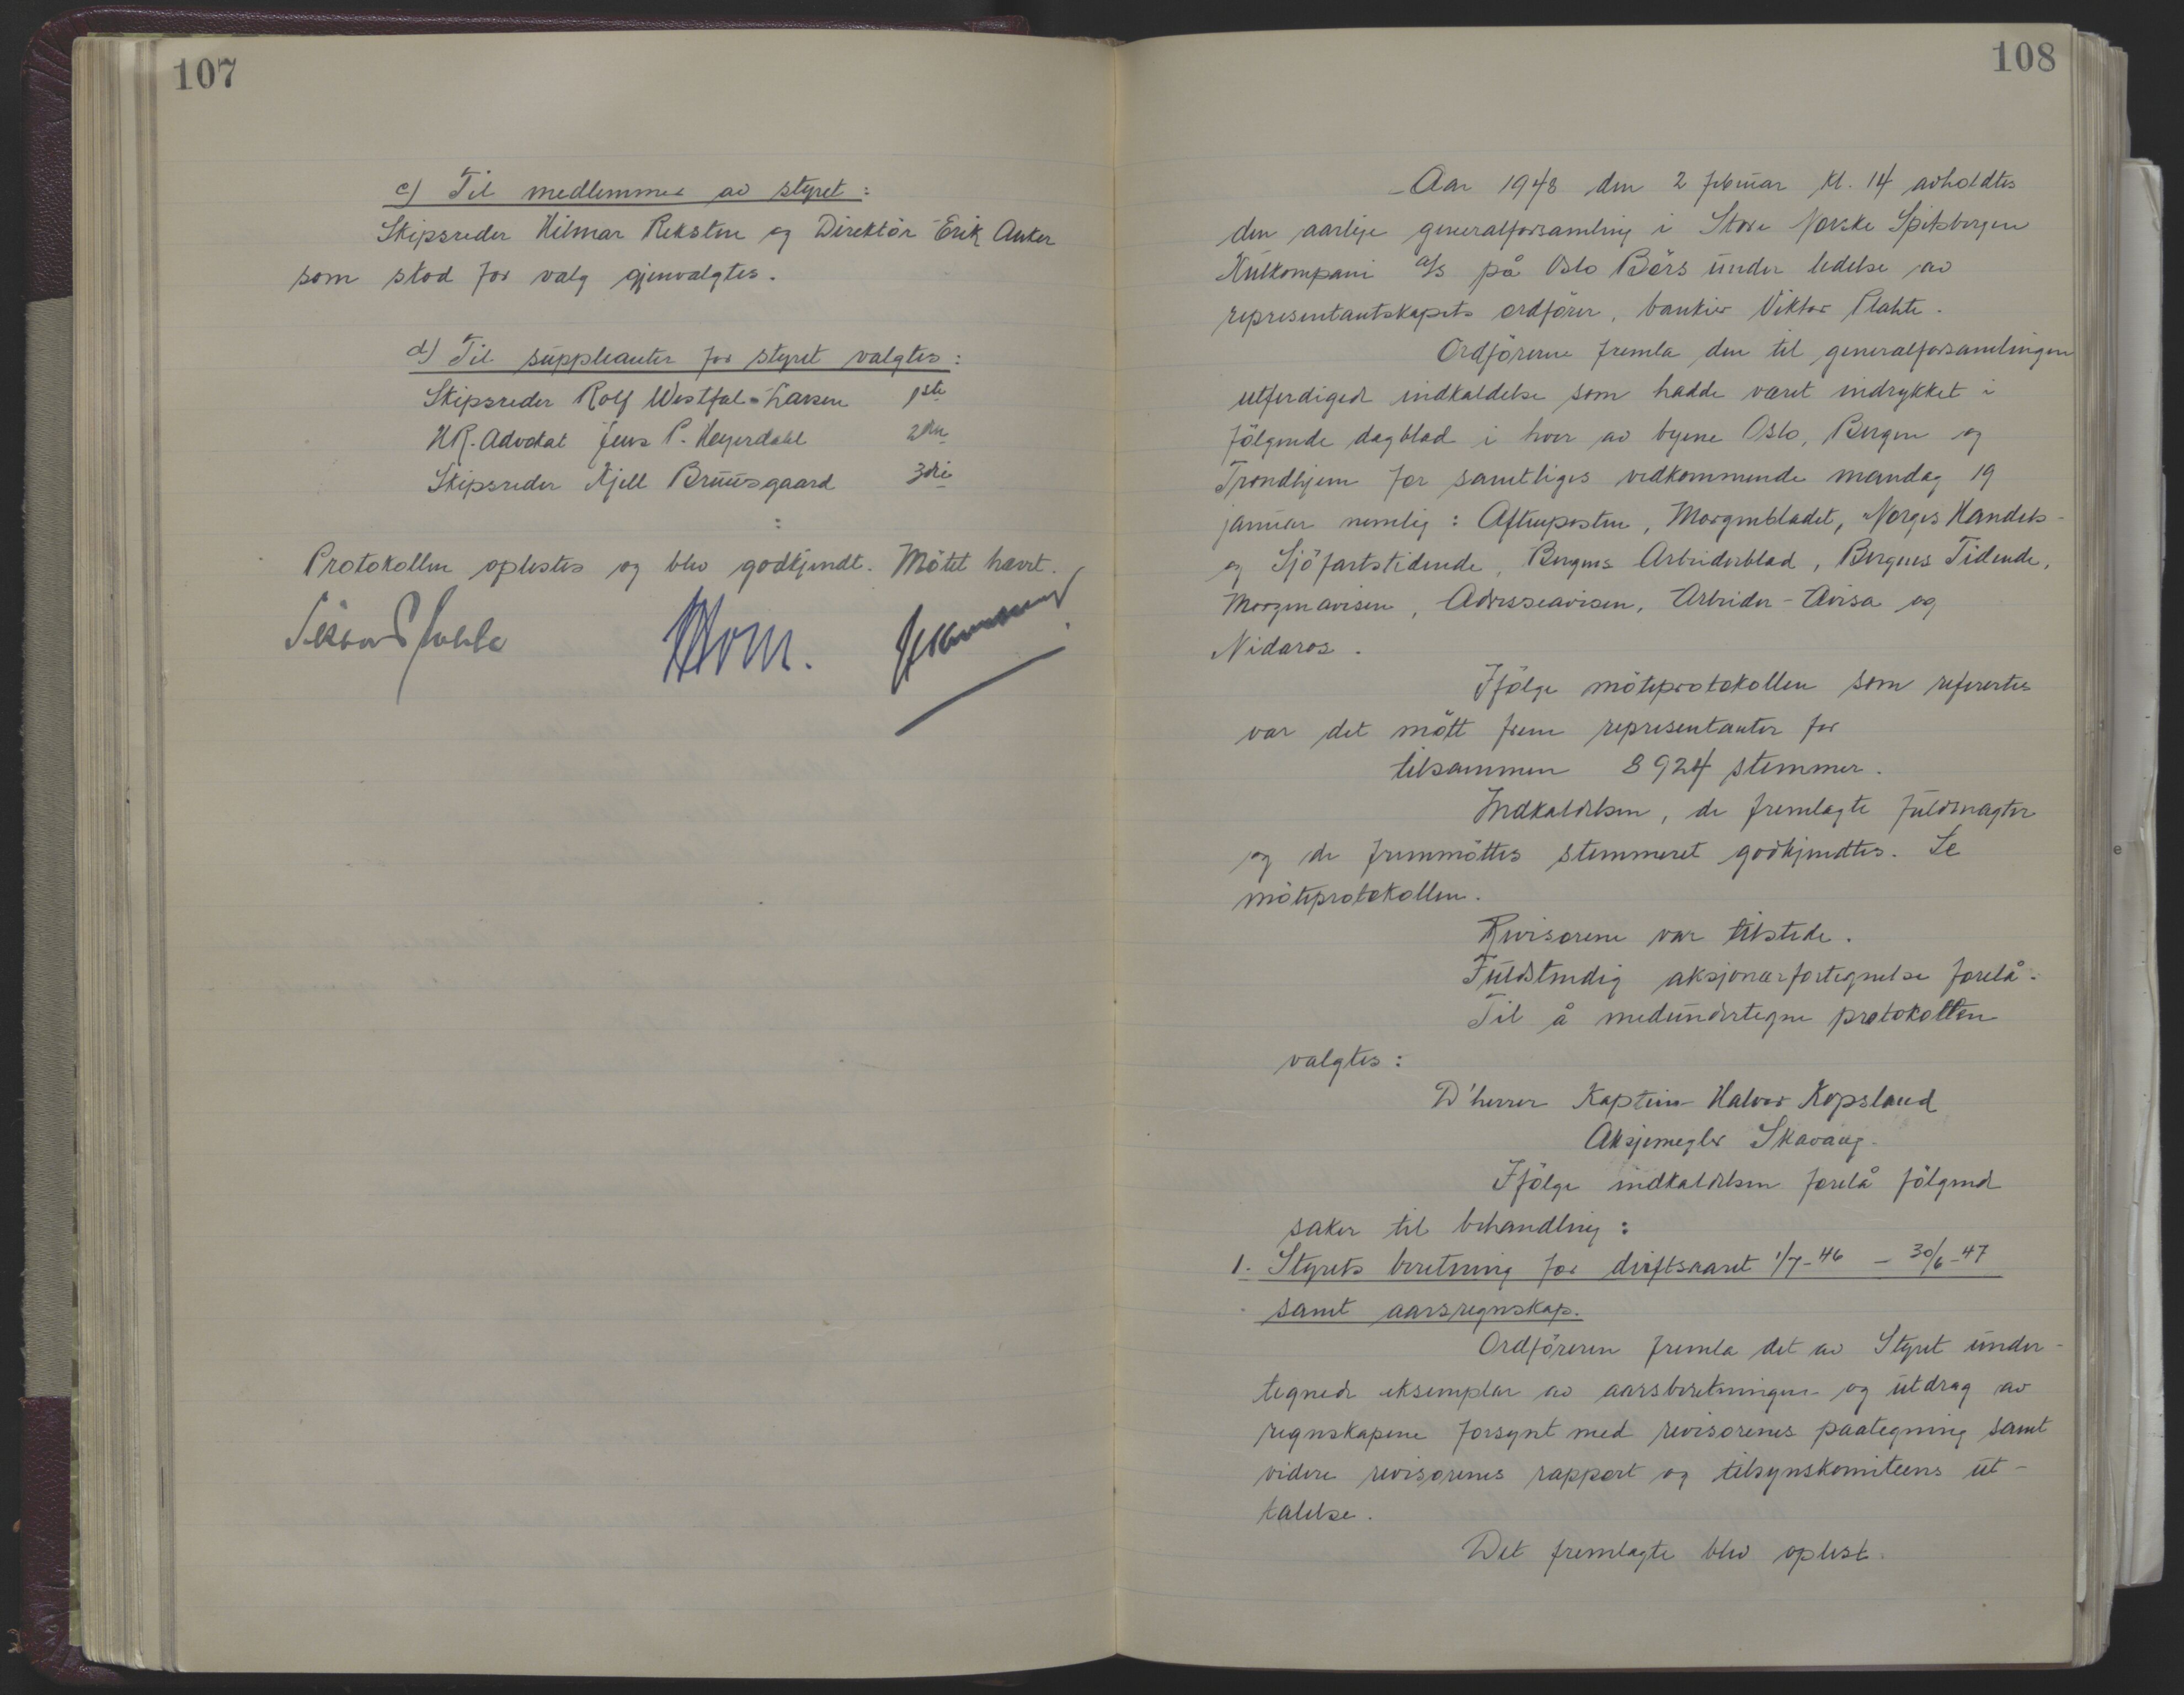 107
c) Til medlemmer av styret:
Skipsreder Hilmar Reksten og Direktör Erik Anker
som stod for valg gjenvalgtes.
d) Til suppleanter for styret valgtes:
Skipsreder Rolf Westfal-Larsen 1ste
HR. Advokat Jens P. Heyerdahl 2den
Skipsreder Kjell Bruusgaard 3die
Protokollen oplestes og blev godkjendt. Mötet hævet.
108
Aar 1948 den 2 februar kl. 14 avholdtes
den aarlige generalforsamling i Store Norske Spitsbergen
Kulkompani A/S på Oslo Börs under ledelse av
representantskapets ordförer, bankier Viktor Plahte.
Ordföreren fremla den til generalforsamlingen
utferdigede indkaldelse som hadde været indrykket i
fölgende dagblad i hver av byene Oslo, Bergen og
Trondhjem for samtliges vedkommende mandag 19
januar nemlig: Aftenposten, Morgenbladet, Norges Handels-
og Sjöfartstidende, Bergens Arbeiderblad, Bergens Tidende,
Morgenavisen, Adresseavisen, Arbeider-Avisa og
Nidaros.
Ifölge möteprotokollen som refertes
var det mött frem representanter for
tilsammen 8924 stemmer.
Indkaldelsen, de fremlagte fuldmagter
og de fremmöttes stemmeret godkjendtes. Se
möteprotokollen.
Revisorene var tilstede.
Fuldstendig aksjonærfortegnelse forelå.
Til å medundertegne protokollen
valgtes:
D'herrer Kaptein Halvor Kopsland
Aksjemegler Skavaug.
Ifölge indkaldelsen forelå fölgende
saker til behandling:
1. Styrets beretning for driftsaaret 1/7-46 - 30/6-47
samt aarsregnskap.
Ordföreren fremla det av Styret under-
tegnede eksemplar av aarsberetningen og utdrag av
regnskapene forsynt med revisorenes paategning samt
videre revisorenes rapport og tilsynskomiteens ut-
talelse.
Det fremlagte blev oplest.